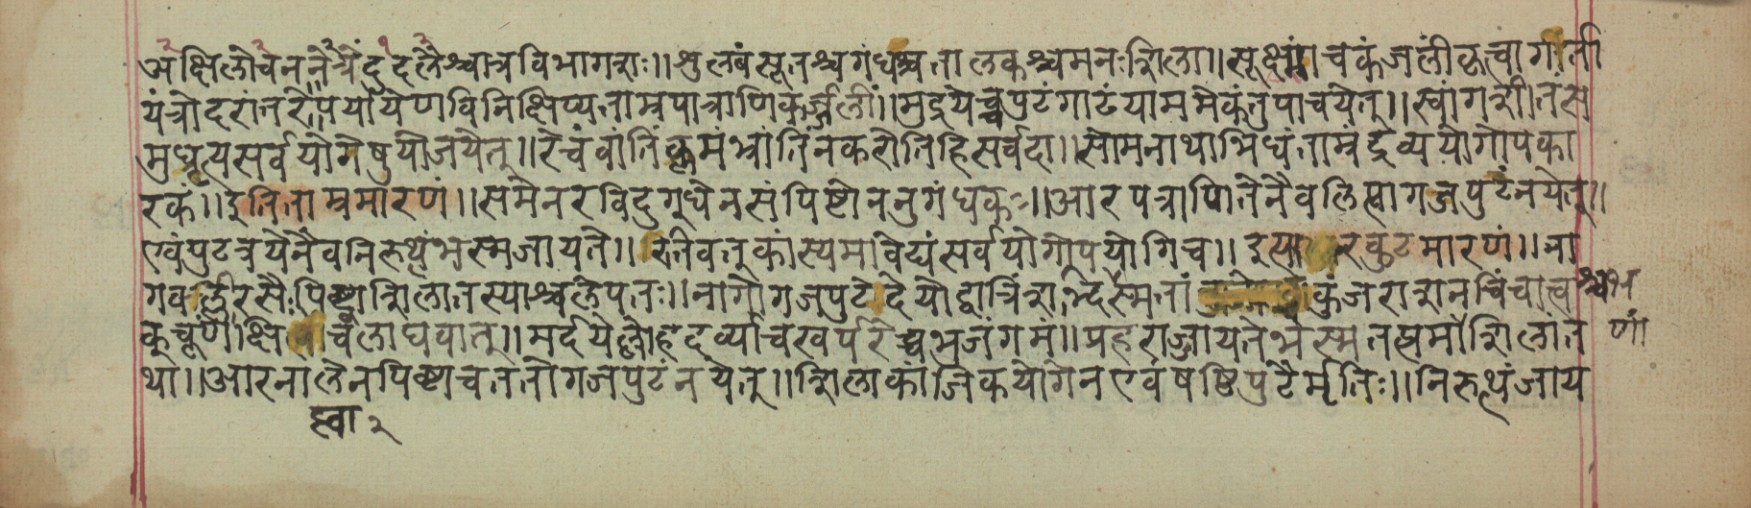 अक्षिलोचननेत्रेंदुदलैश्चात्रविभागशः॥शुल्बंसूतश्चगंधश्चतालकश्चमनःशिला॥सूक्ष्मंचकंजलींकृत्वागर्ती
यंत्रोदरांतरेपर्यायेणविनिक्षिप्यताम्रपात्राणिकज्जलीं॥मुद्रयेच्चपुटंगाढंयाममेकंतुपाचयेत्॥स्वांगशीतंस
मुधृत्यसर्वयोगेषुयोजयेत्॥रेचंवांतिंक्लमंभ्रांतिंनकरोतिहिसर्वदा॥सोमनाथाभिधंताम्रंद्रव्ययोगोपका
रकं॥इतिताम्रमारणं॥समेनरविदुग्धेनसंपिष्टेननुगंधकः॥आरपत्राणितेनैवलिप्त्वागजपुटंनयेत्॥
एवंपुटत्रयेनैवनिरुत्थंभस्मजायते॥रीतिवत्कांस्यमावेद्यंसर्वयोगोपयोगिच॥इत्यारकुटमारणं॥ना
गवल्लीरसैःपिष्टाशिलातस्याश्चलेपतः॥नागोगजपुटेदेयोद्वात्रिंशद्भिर्स्मतां कुंजराशनचिंचात्व
क्चूर्णक्षिचलाघवात्॥मर्दयेल्लोहदर्व्याचखर्परेच्चभुजंगमं॥प्रहराज्जायतेभस्मतत्समांशिलांत
था॥आरनालेनपिष्टाचततोगजपुटंनयेत्॥शिलाकांजिकयोगेनएवंषष्टिपुटैर्मृतिः॥निरुत्थंजाय
ह्वा २